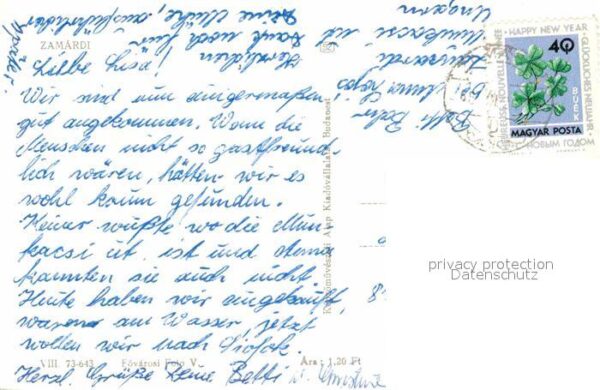 ZAMÁRDI
Liebe Lisa!
Wir sind nun einigermaßen
gut angekommen. Wenn die
Menschen nicht so gastfreund-
lich wären, hätten wir es
wohl kaum gefunden.
Keiner wußte wo die Mun-
kacsi út. ist und
kannten sie auch nicht
Heute haben wir eingekauft,
waren am Wasser, jetzt
wollen wir nach Siofok.
Herzl. Grüße Deine Betti u.
VIII. 73-643 Fővárosi Foto V. Ára: 1,20 Ft
Herzlichen
Dank noch für
Deine Mühe, ausführlicher
später.
Képzőművészeti Alap Kiadóvállalata, Budapest
Betti
bei
Zamardi
Munkacsi út
Ungarn
HAPPY NEW YEAR
GLÜCKLICHES NEUJAHR
HEUREUSE NOUVELLE ANNÉE
С НОВЫМ ГОДОМ
40
BUÉK
MAGYAR POSTA
privacy protection
Datenschutz